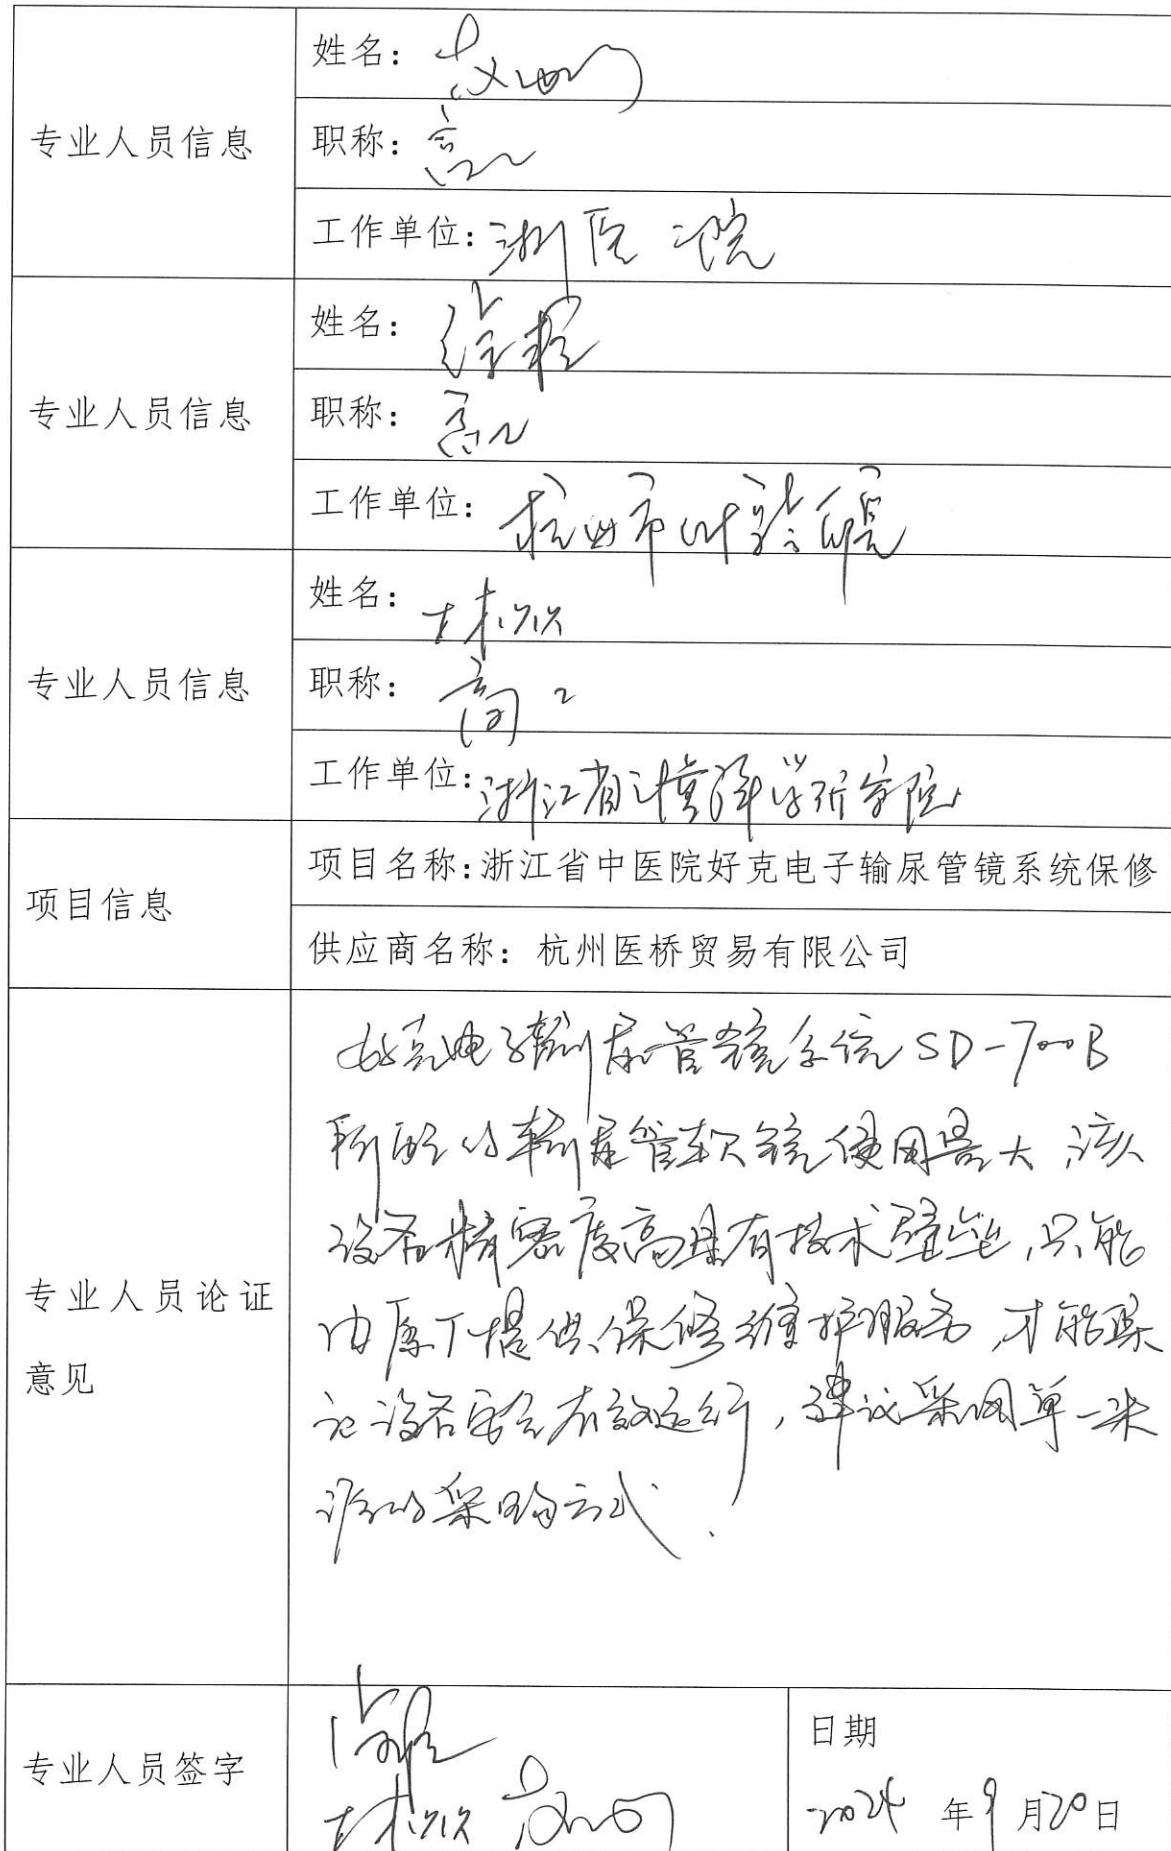 专业人员信息
姓名：
职称：高工
工作单位：浙 医 院
专业人员信息
姓名：徐
职称：高工
工作单位：杭州市 院
专业人员信息
姓名：
职称：高工
工作单位：浙江省计量科学研究院
项目信息
项目名称：浙江省中医院好克电子输尿管镜系统保修
供应商名称：杭州医桥贸易有限公司
专业人员论证
意见
好克电子输尿管镜系统SD-700B
所配的输尿管软镜使用量大，该
设备精密度高且有技术壁垒，只能
由原厂提供保修维护服务，才能保
证设备安全有效运行，建议采用单一来
源的采购方式.
专业人员签字
日期
2024年9月20日